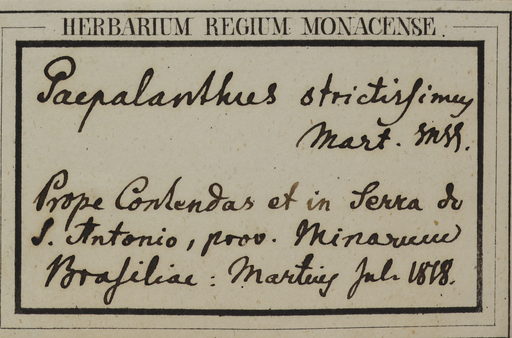 HERBARIUM REGIUM MONACENSE.
Paepalanthus strictissimus
Mart. MSS.
Prope Contendas et in Serra de
S. Antonio, prov. Minarum
Brasiliae: Martius Jul. 1818.